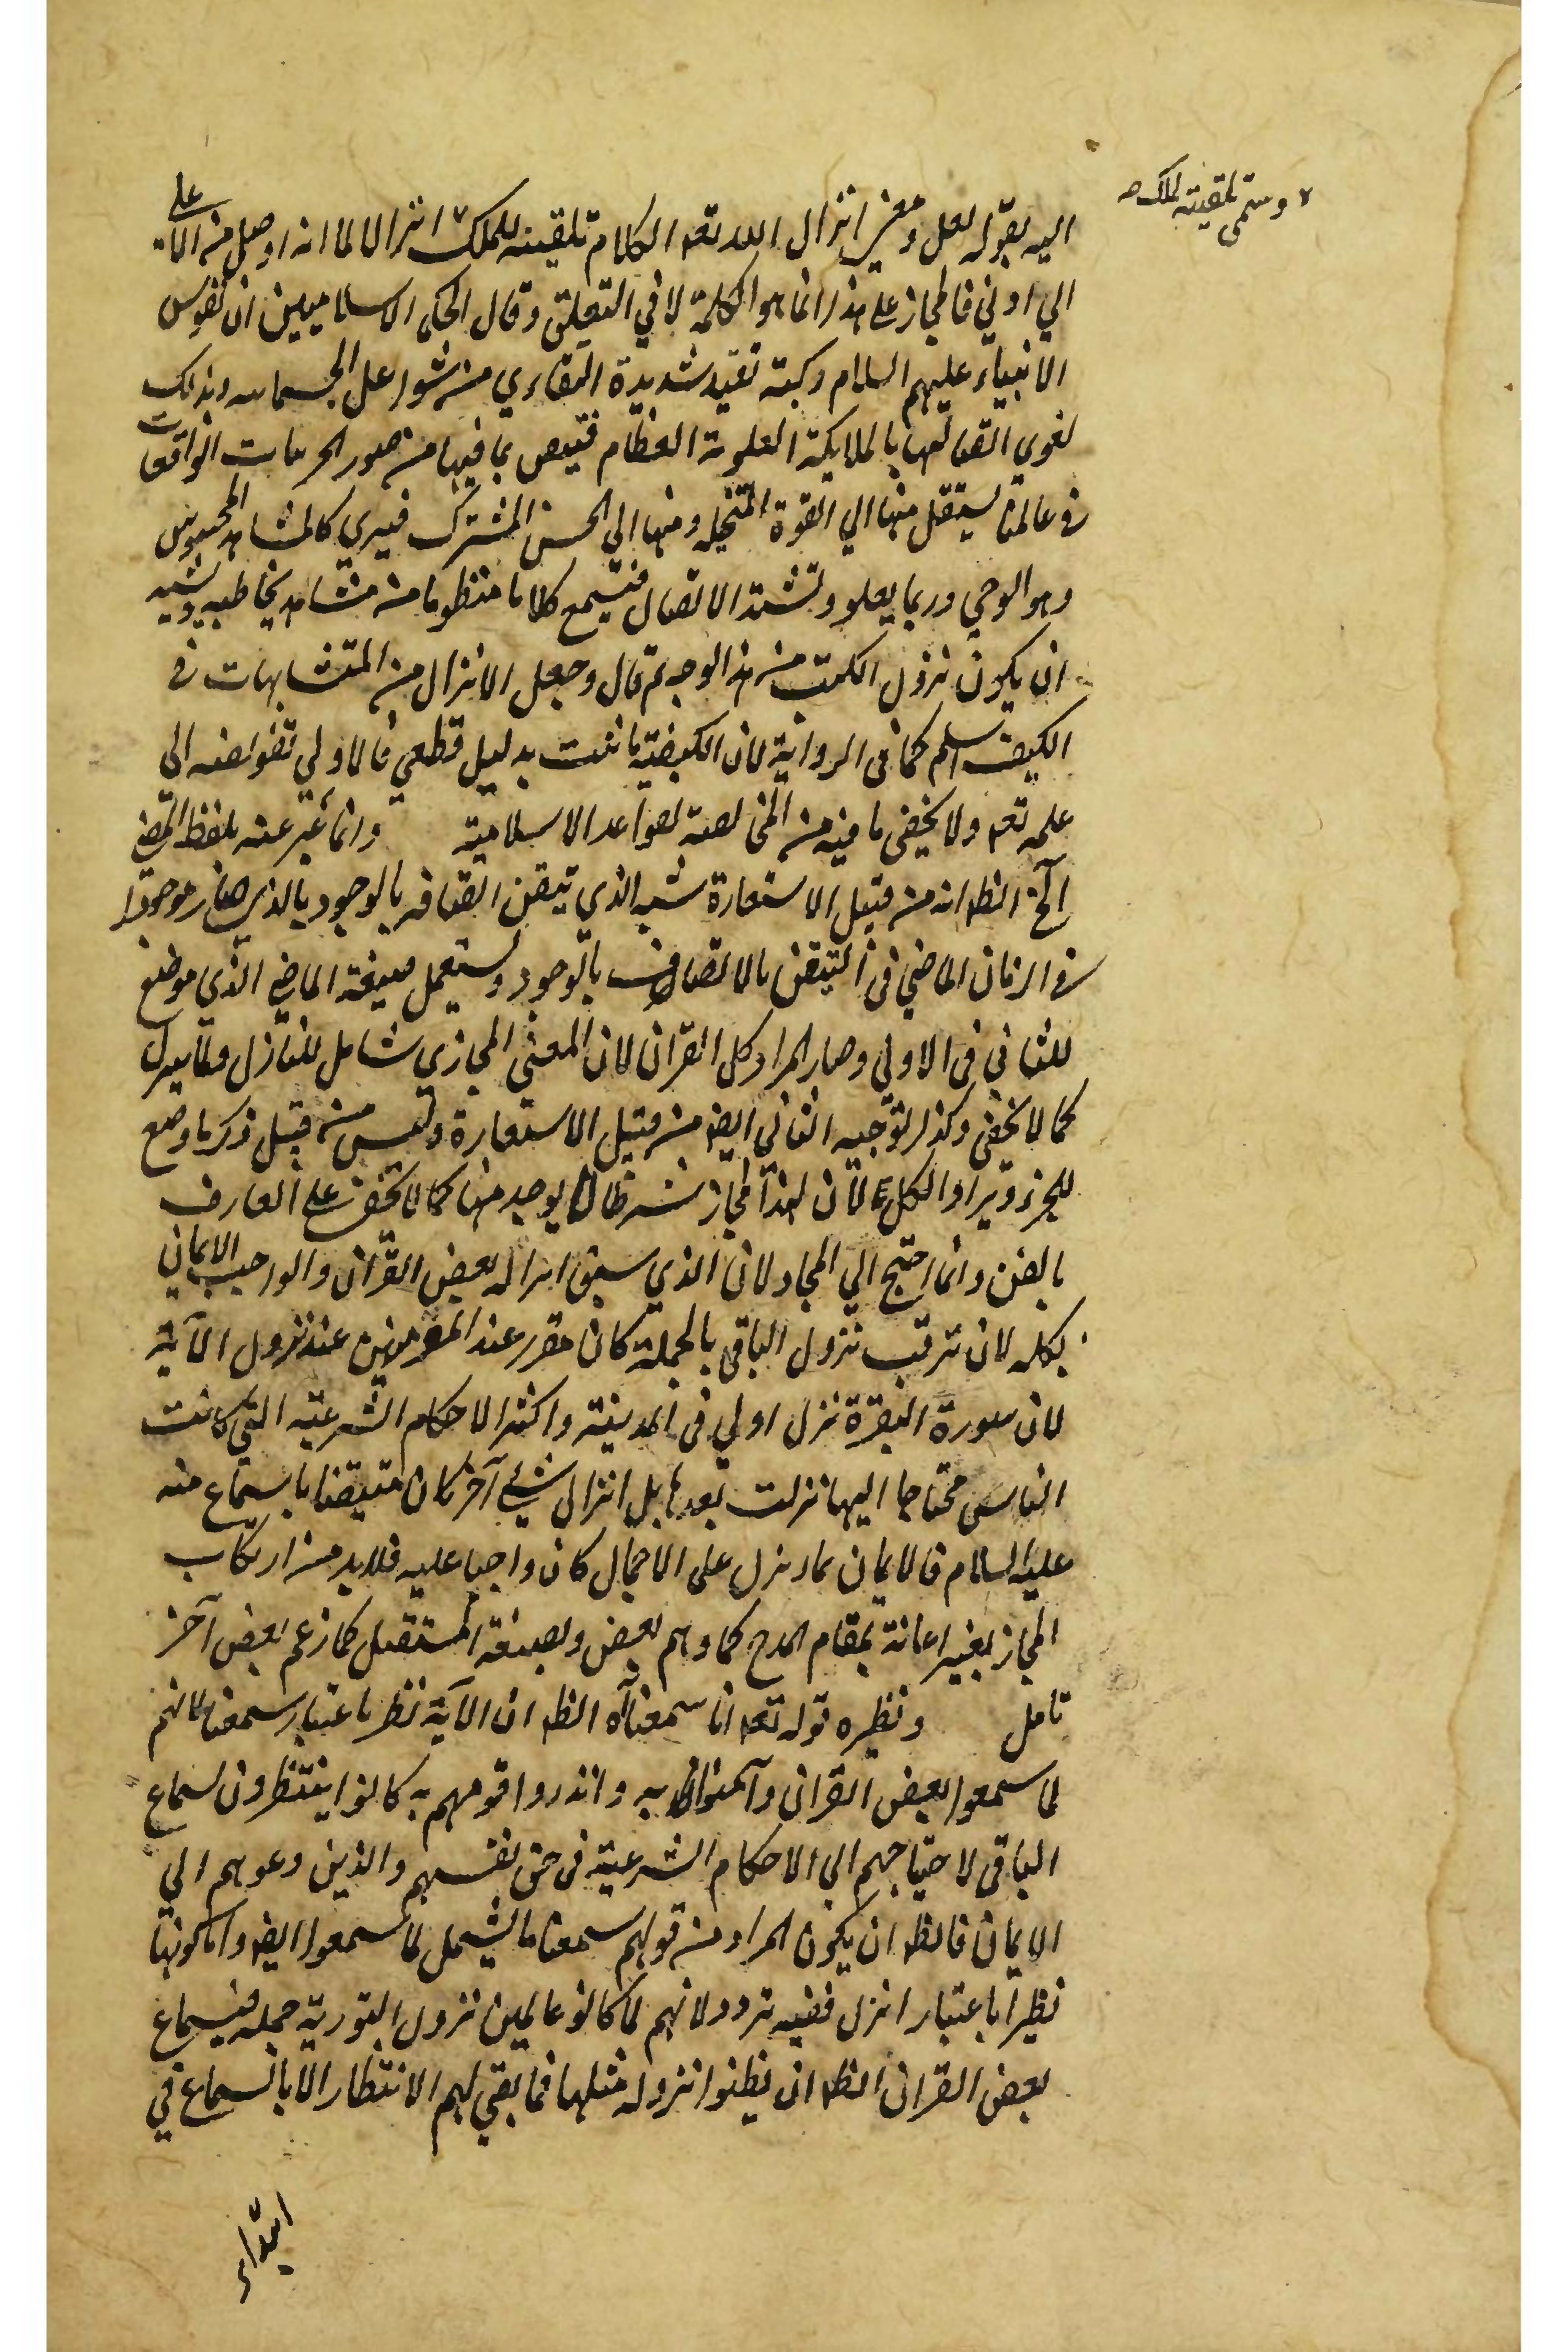 وسمى تلقينه للملك صح
اليه بقوله لعل ومعنى انزال الله تعـ الكلام تلقينه للملك انزالا لما انه اوصل من الاعلى
الي ادني فالمجاز على هذا انما هو الكلمة لا في التعلق وقال الحكماء الاسلاميين ان نفوس
الانبياء عليهم السلام شديدة من شواغل الجسمانية وبذلك
لقوي اتصالها بالملايكة العلوية العظام بما فيها من صور الجزئيات الواقعات
في عالمنا ينتقل منها الي القوة المتخيلة ومنها الي الحس المشترك فيري كالمشاهد المحسوس
وهو الوحي وربما يعلو ويشتد الاتصال فيسمع كلاما منظوما من مشاهد يخاطبه ويشبه
ان يكون نزول الكتب من هذا الوجه ثم قال وجعل الانزال من المتشابهات في
الكيف اسلم كما في الرواية لان الكيفية ما ثبت بدليل قطعي فالاولي تفويضه الي
علمه تعـ ولا يخفى ما فيه من المخالفة لقواعد الاسلامية وانما عبر عنه بلفظ الماضي
الخ الظـ انه من قبيل الاستعارة شبه الذي تيقن اتصافه بالوجود بالذي صار موجودا
في الزمان الماضي في التيقن بالاتصاف بالوجود ويستعمل صيغة الماضي الذي موضوع
للثاني في الاولي وصار المراد كل القران لان المعني المجازي شامل للنازل وما ينزل
كما لا يخفى وكذا لتوجيه الثاني ايضـ من قبيل الاستعارة وليس من قبيل ذكر ما وضع
للجزء ويراد الكل لان لهذا المجاز شرطا لا يوجد منها كما لا يخفى على العارف
بالفن وانما احتج الي المجاز لان الذي سبق انزاله بعض القرآن والواجب الايمان
بكله لان ترقب نزول الباقي بالجملة كان مقرر عند المؤمنين عند نزول الآية
لان سورة البقرة نزل اولي في المدينة واكثر الاحكام الشرعيه التي كانت
الناس محتاجا اليها نزلت بعدها بل انزال شيء آخر كان متيقنا باسماع منه
عليه السلام فالايمان بما ينزل على الاجمال كان واجبا عليه فلا بد من ارتكاب
المجاز لغير اعانة بمقام المدح كما وهم بعض وبصيغة المستقبل كما زعم بعض آخر
تامل ونظيره قوله تعـ انا سمعناآه الظـ ان الآية نظر باعتبار سمعنا لانهم
لما سمعوا بعض القران وآمنوا به وانذروا قومهم به كانوا ينتظرون لسماع
الباقي لاحتياجهم الي الاحكام الشرعية في حق نفسهم والذين دعوهم الي
الايمان فالظـ ان يكون المراد من قولهم سمعنا ما يشمل لما سمعوا ايضـ واما كونها
نظيرا باعتبار انزل ففيه تردد لانهم لما كانو عالمين نزول التورية جملة فبسماع
بعض القران الظـ ان يظنوا نزوله مثلها فما بقي لهم الانتظار الا بالسماع في